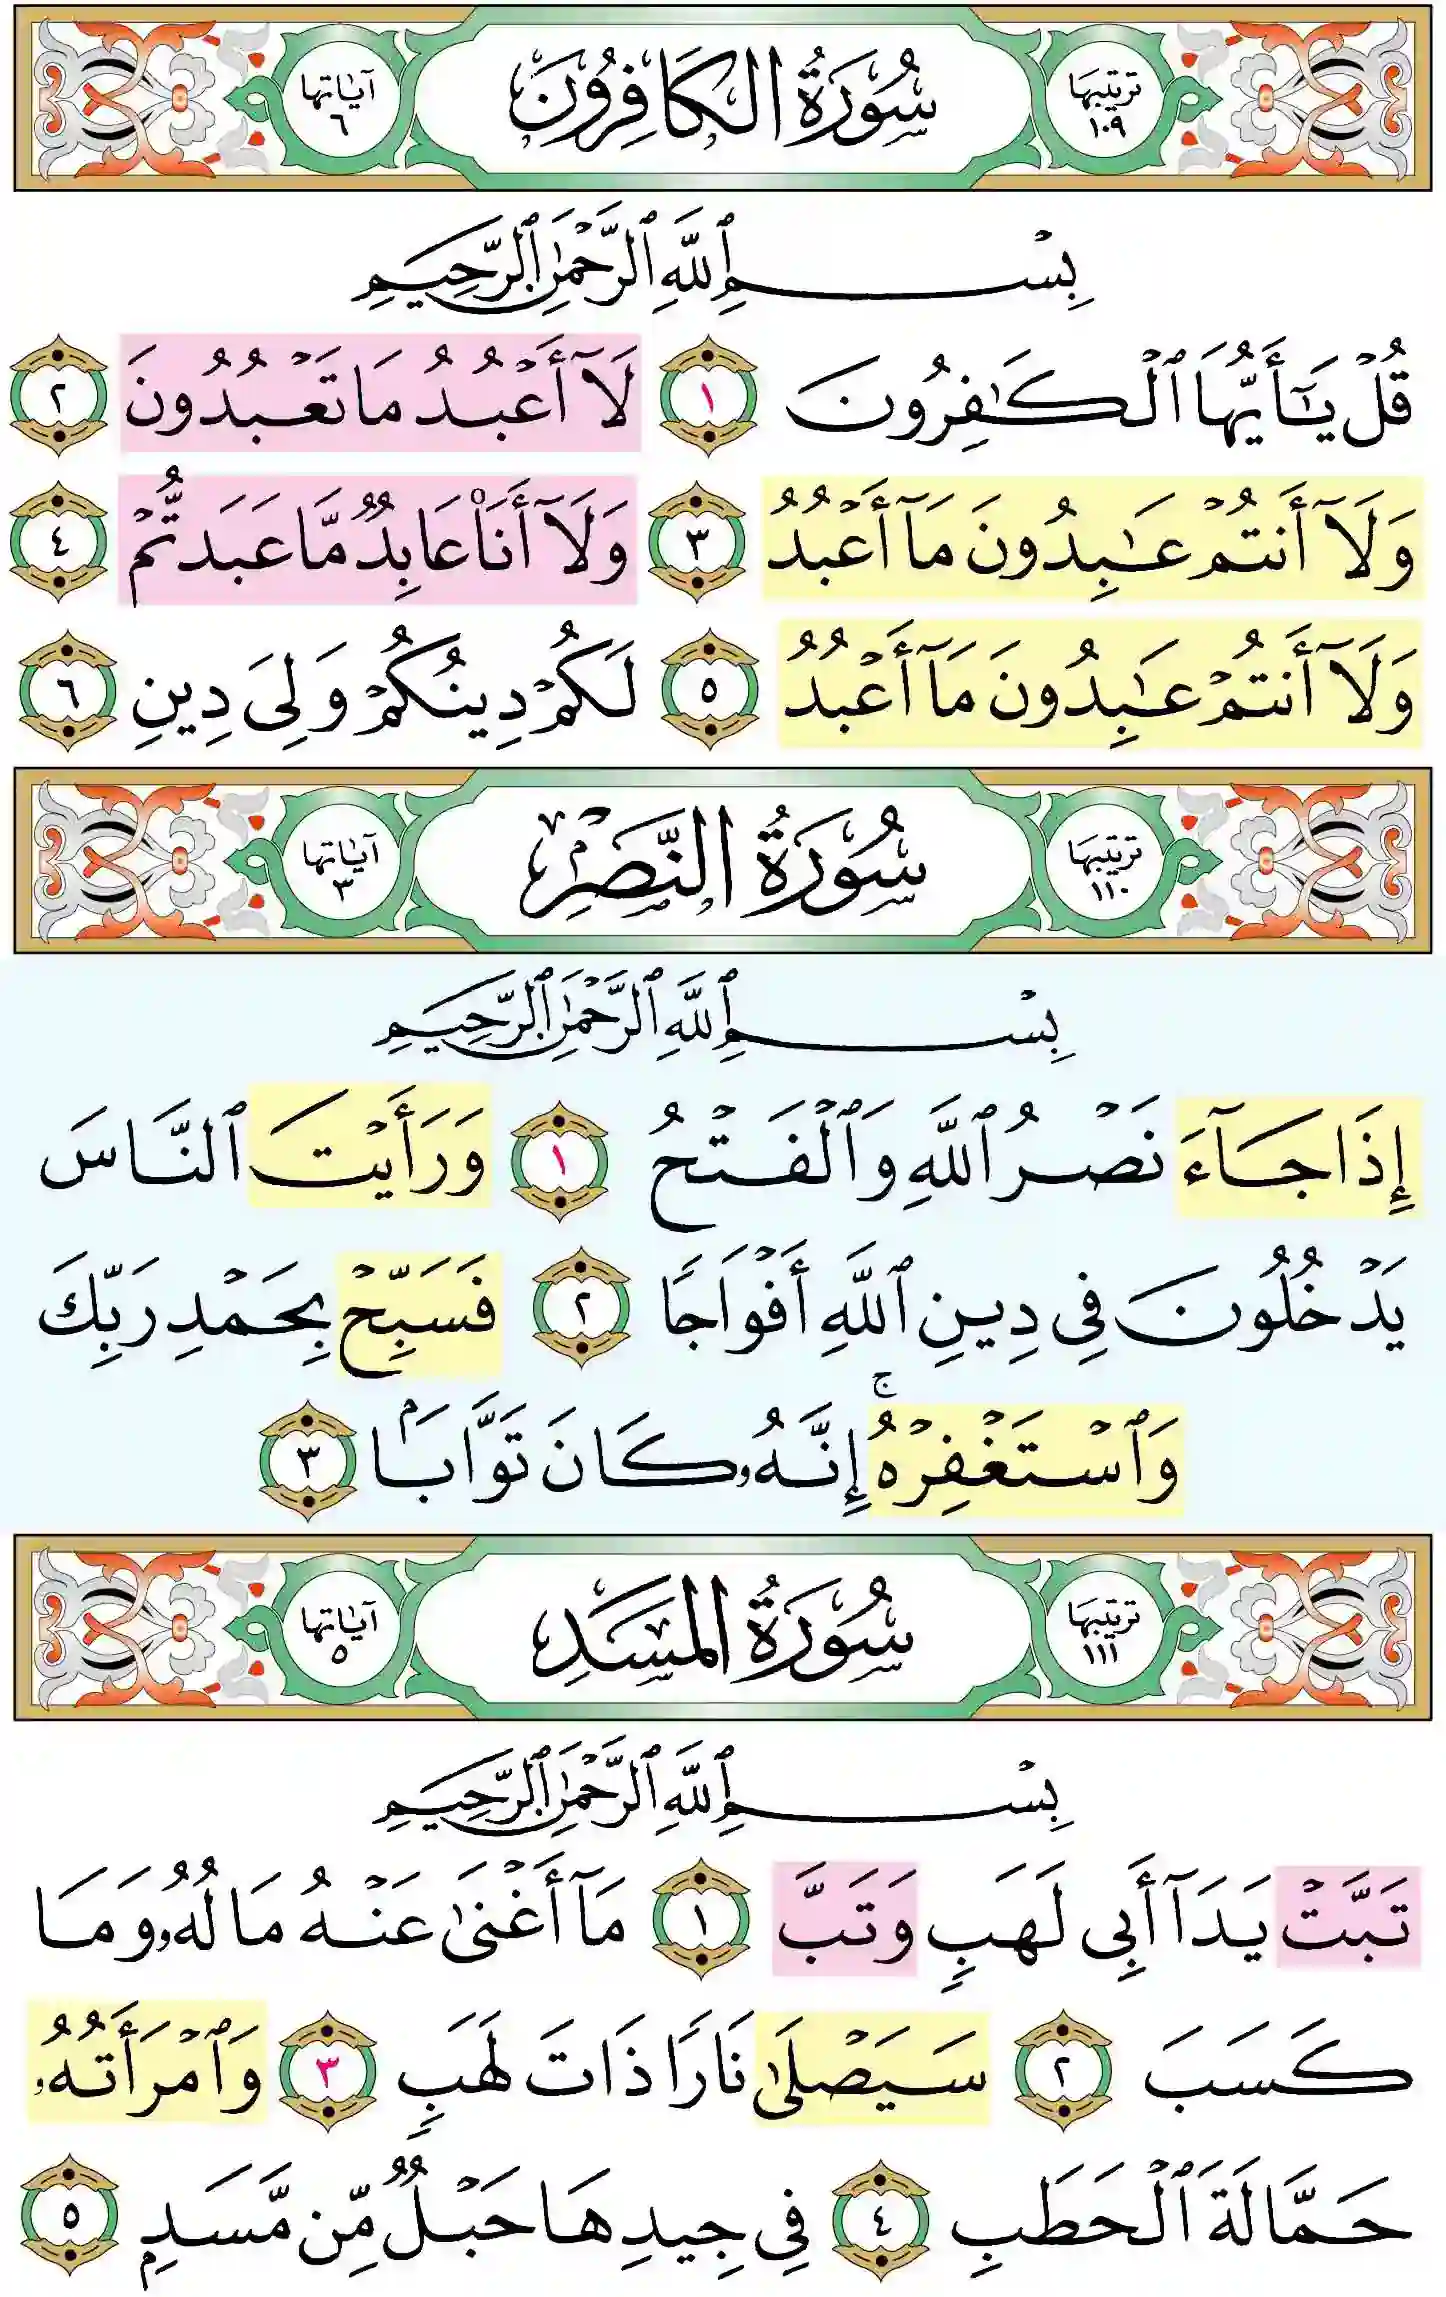 ترتيبها ١٠٩ سُورَةُ الكَافِرُونَ آيَاتها ٦
بِسۡمِ ٱللَّهِ ٱلرَّحۡمَٰنِ ٱلرَّحِيمِ
قُلۡ يَٰٓأَيُّهَا ٱلۡكَٰفِرُونَ ١ لَآ أَعۡبُدُ مَا تَعۡبُدُونَ ٢
وَلَآ أَنتُمۡ عَٰبِدُونَ مَآ أَعۡبُدُ ٣ وَلَآ أَنَا۠ عَابِدٞ مَّا عَبَدتُّمۡ ٤
وَلَآ أَنتُمۡ عَٰبِدُونَ مَآ أَعۡبُدُ ٥ لَكُمۡ دِينُكُمۡ وَلِيَ دِينِ ٦
ترتيبها ١١٠ سُورَةُ النَّصۡرِ آيَاتها ٣
بِسۡمِ ٱللَّهِ ٱلرَّحۡمَٰنِ ٱلرَّحِيمِ
إِذَا جَآءَ نَصۡرُ ٱللَّهِ وَٱلۡفَتۡحُ ١ وَرَأَيۡتَ ٱلنَّاسَ
يَدۡخُلُونَ فِي دِينِ ٱللَّهِ أَفۡوَاجٗا ٢ فَسَبِّحۡ بِحَمۡدِ رَبِّكَ
وَٱسۡتَغۡفِرۡهُۚ إِنَّهُۥ كَانَ تَوَّابَۢا ٣
ترتيبها ١١١ سُورَةُ المَسَدِ آيَاتها ٥
بِسۡمِ ٱللَّهِ ٱلرَّحۡمَٰنِ ٱلرَّحِيمِ
تَبَّتۡ يَدَآ أَبِي لَهَبٖ وَتَبَّ ١ مَآ أَغۡنَىٰ عَنۡهُ مَالُهُۥ وَمَا
كَسَبَ ٢ سَيَصۡلَىٰ نَارٗا ذَاتَ لَهَبٖ ٣ وَٱمۡرَأَتُهُۥ
حَمَّالَةَ ٱلۡحَطَبِ ٤ فِي جِيدِهَا حَبۡلٞ مِّن مَّسَدِۭ ٥